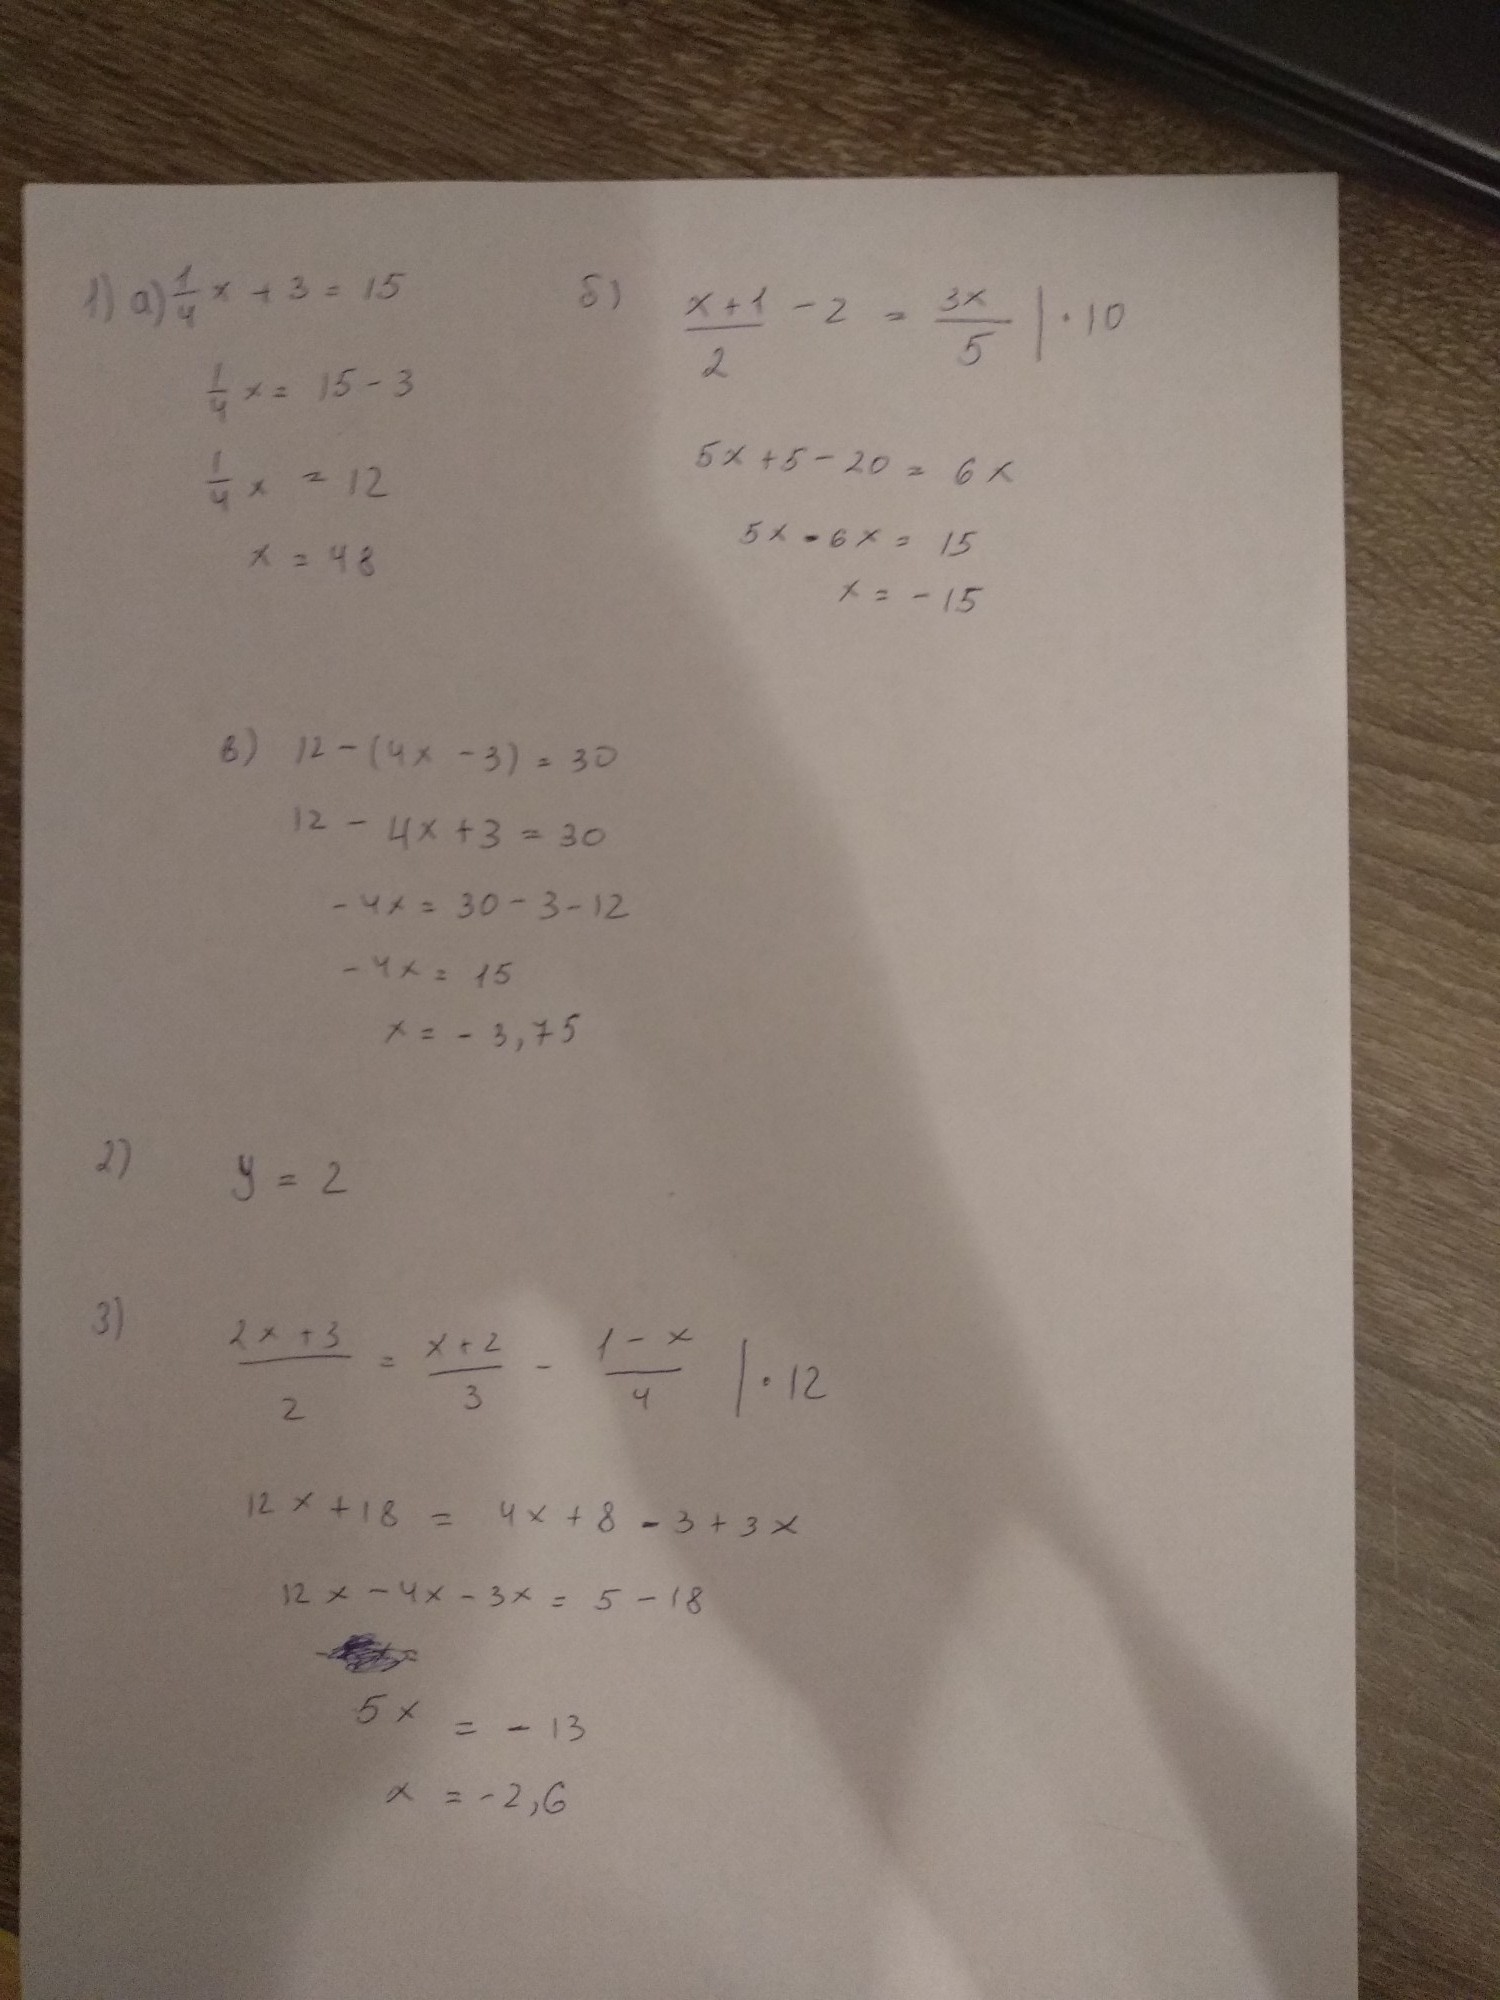 1) а) 1/4 x + 3 = 15
1/4 x = 15 - 3
1/4 x = 12
x = 48
б) (x+1)/2 - 2 = 3x/5 | · 10
5x + 5 - 20 = 6x
5x - 6x = 15
x = - 15
в) 12 - (4x - 3) = 30
12 - 4x + 3 = 30
- 4x = 30 - 3 - 12
- 4x = 15
x = - 3,75
2) y = 2
3) (2x + 3)/2 = (x + 2)/3 - (1 - x)/4 | · 12
12x + 18 = 4x + 8 - 3 + 3x
12x - 4x - 3x = 5 - 18
5x = - 13
x = - 2,6